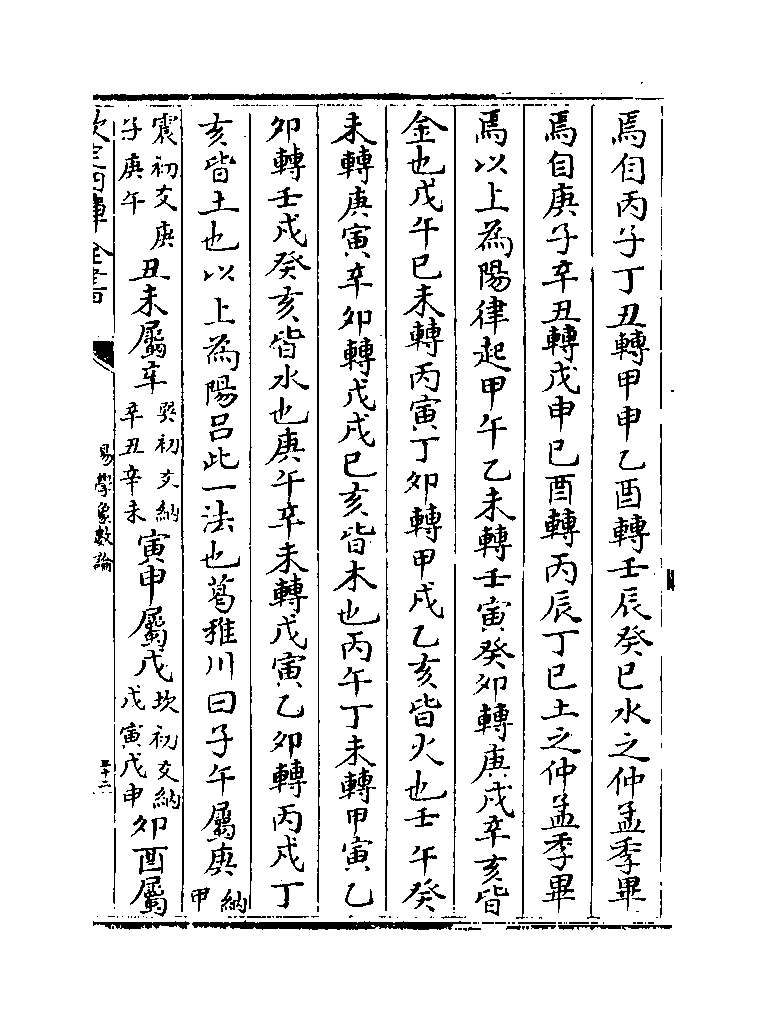 焉自丙子丁丑轉甲申乙酉轉壬辰癸巳水之仲孟季畢
焉自庚子辛丑轉戊申己酉轉丙辰丁巳土之仲孟季畢
焉以上為陽律起甲午乙未轉壬寅癸卯轉庚戌辛亥皆
金也戊午己未轉丙寅丁卯轉甲戌乙亥皆火也壬午癸
未轉庚寅辛卯轉戊戌己亥皆木也丙午丁未轉甲寅乙
卯轉壬戌癸亥皆水也庚午辛未轉戊寅乙卯轉丙戌丁
亥皆土也以上為陽呂此一法也葛稚川曰子午屬庚納甲
震初爻庚子庚午丑未屬辛巽初爻納辛丑辛未寅申屬戊坎初爻納戊寅戊申卯酉屬
欽定四庫全書
易學象數論
三十二